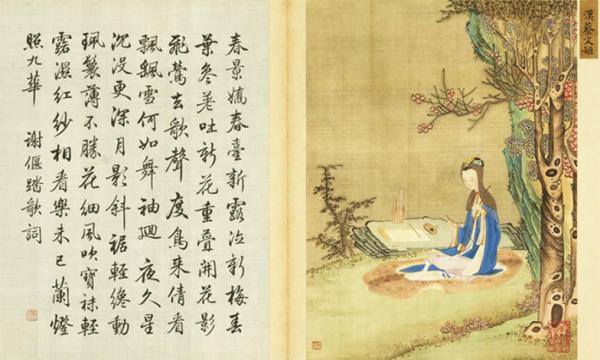 漢蔡文姬
春景嬌春臺新露泣新梅春
葉參差吐新花重疊開花影
飛鶯去歌聲度鳥來倩看
飄颻雪何如舞袖迴夜久星
沉没更深月影斜裾輕纔動
珮鬟薄不勝花細風吹寶袜輕
露濕紅紗相看樂未已蘭燈
照九華 謝偃踏歌詞